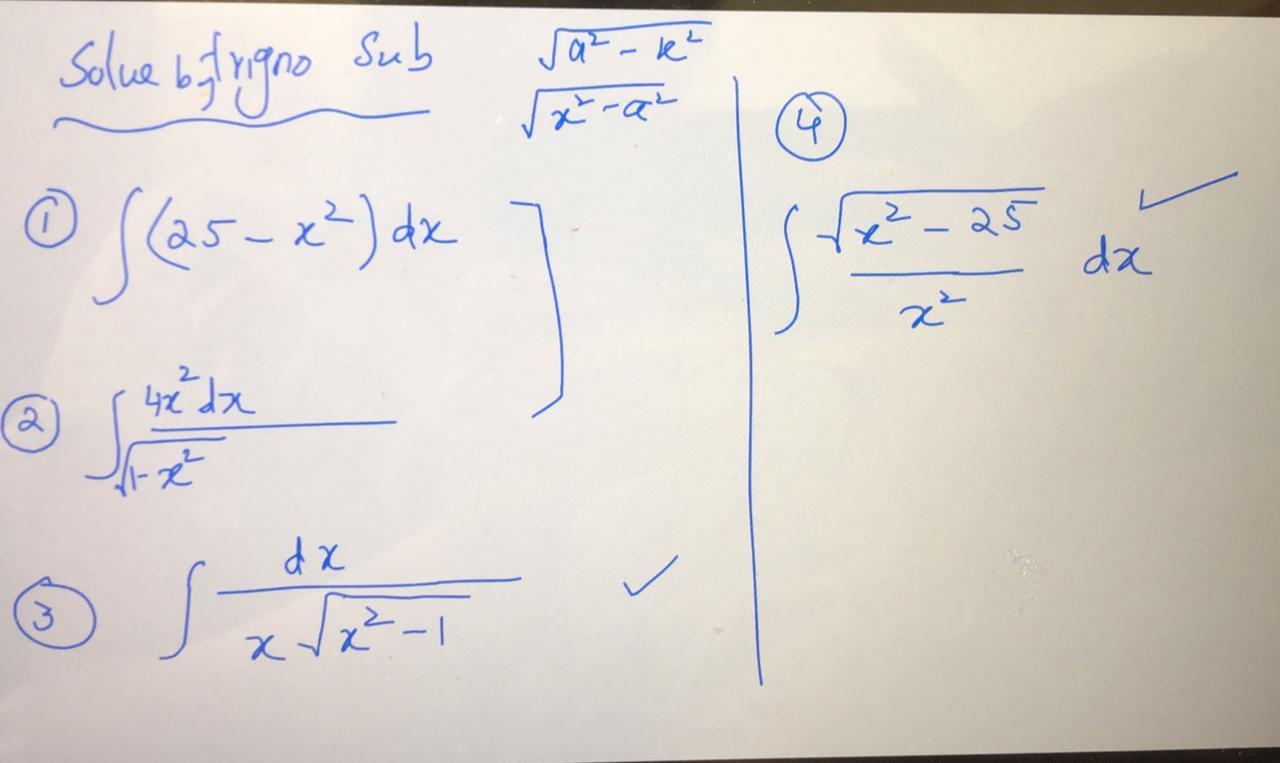 Solve by Trigno Sub
√a² - x²
√x² - a²
① ∫(25 - x²) dx
② ∫ 4x² dx
√1 - x²
③ ∫ dx
x √x² - 1 ✓
④
∫ √x² - 25 dx ✓
x²